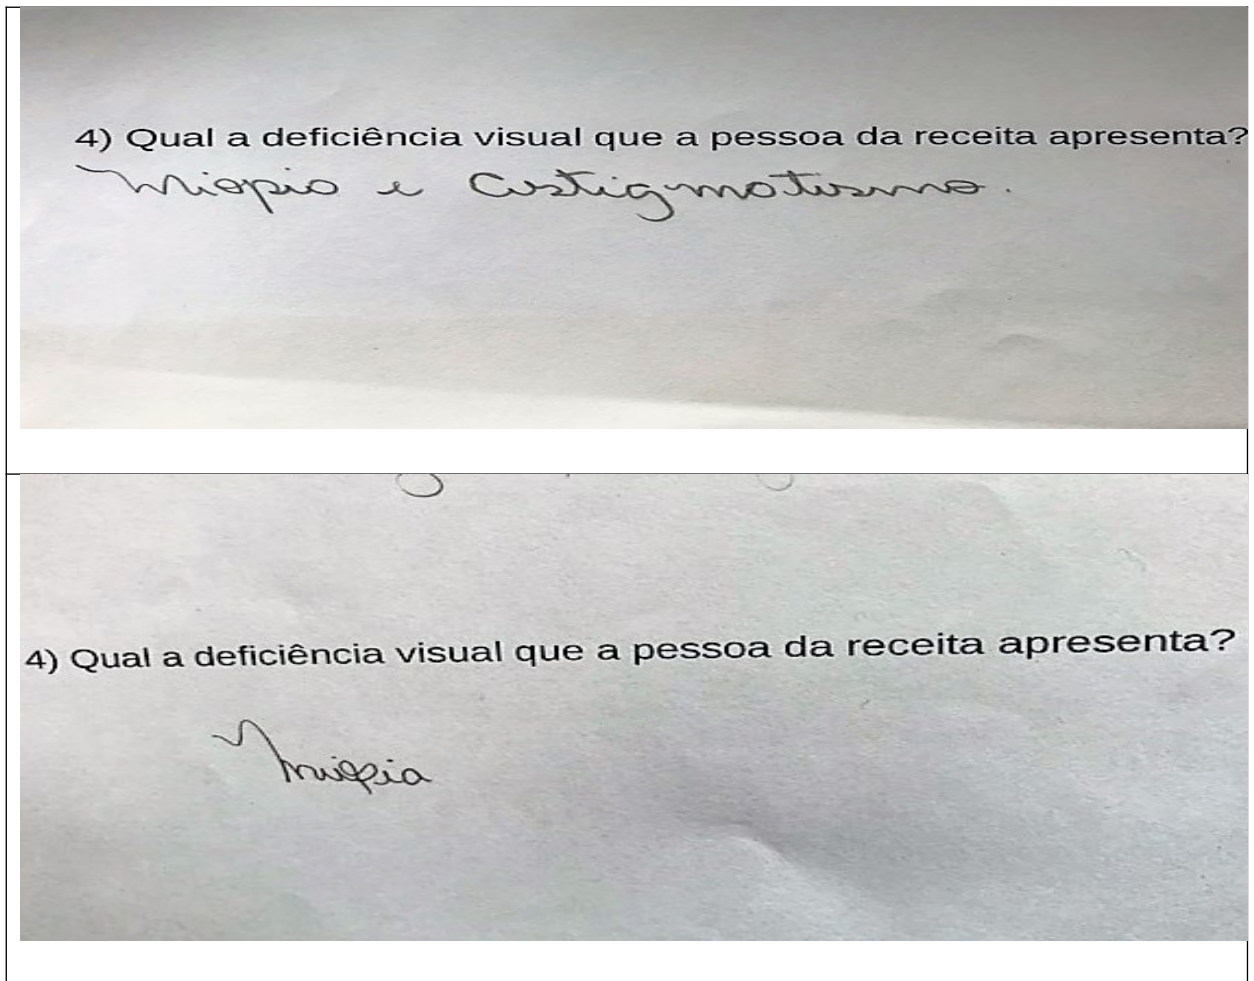 4) Qual a deficiência visual que a pessoa da receita apresenta?
Miopia e Astigmatismo.
4) Qual a deficiência visual que a pessoa da receita apresenta?
Miopia